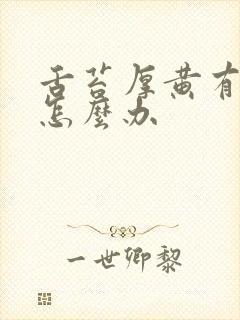 舌苔厚黄有
怎麼办
一世卿黎